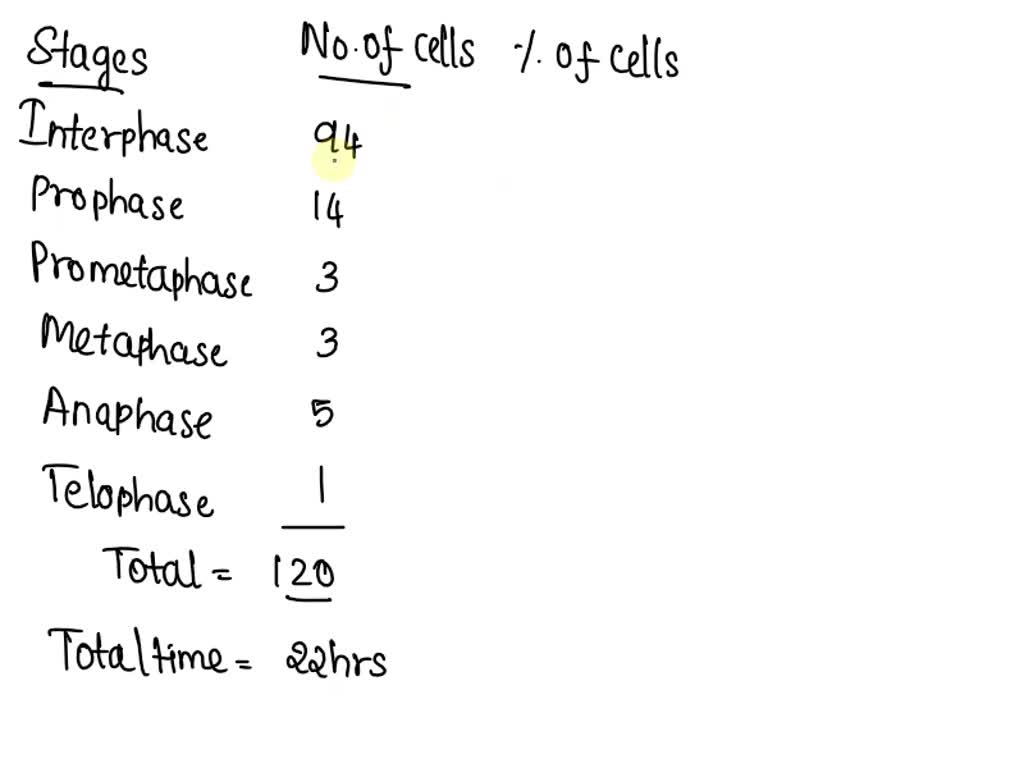 Stages No. of cells % of cells
Interphase 94
Prophase 14
Prometaphase 3
Metaphase 3
Anaphase 5
Telophase 1
Total = 120
Total time = 22hrs